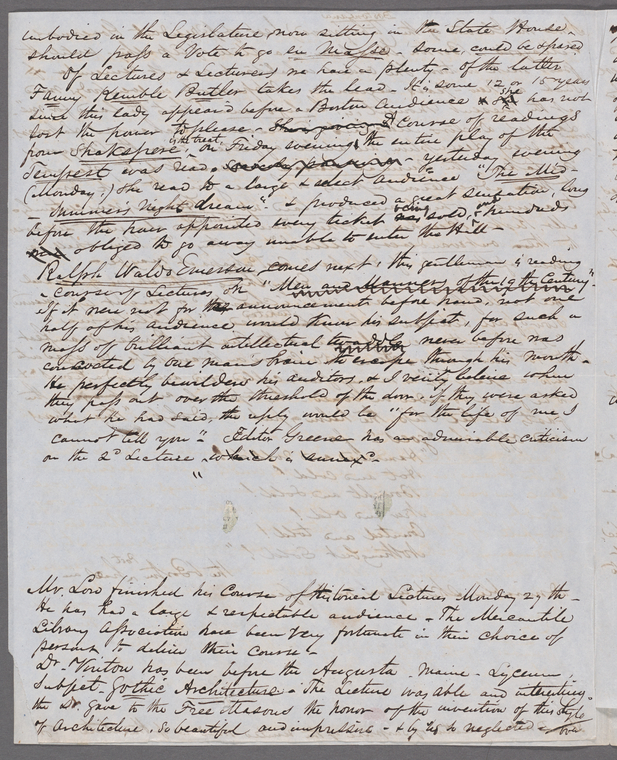 embodied in the Legislature now sitting in the State House -
should pass a Vote to go en Masse - some could be spared
Of Lectures & Lecturers we have a plenty - of the latter
Fanny Kemble Butler takes the lead. It is some 12 or 15 years
since this lady appear'd before a Boston Audience & she has not
lost the power to please - A Course of readings
from Shakespere, on Friday evening the entire play of the
Tempest was read, - yesterday evening
(Monday,) She read to a large & select audience "The Mid-
-summer's Night dream", & produced a great sensation, long
before the hour appointed every ticket was sold, and hundreds
obliged to go away unable to enter the Hall -
Ralph Waldo Emerson comes next, this gentleman is reading
a Course of Lectures, on "Men and Manners of the 19th Century".
If it were not for announcements before hand, not one
half of his audience would know his subject, for such a
mass of brilliant intellectual never before was
concocted by one man's brain to escape through his mouth -
He perfectly bewilders his auditors, & I verily believe when
they pass out over the threshold of the door, if they were asked
what he had said, the reply would be "for the life of me I
cannot tell you". Editor Greene has an admirable criticism
on the 2d Lecture - which is annex'd -
"
Mr. Lord finished his Course of Historical Lectures Monday 29th -
He has had a large & respectable audience - The Mercantile
Library Association have been very fortunate in their choice of
persons to deliver their course -
Dr. Vinton has been before the Augusta Maine - Lyceum -
Subject Gothic Architecture - The Lecture was able and interesting
the Dr. gave to the Free Masons the honor of the invention of this style
of Architecture, so beautiful and impressive - & by us so neglected -